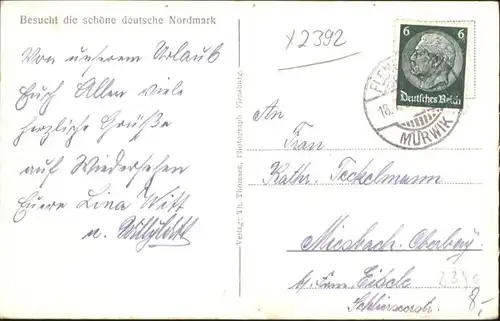 Besucht die schöne deutsche Nordmark
Von unserem Urlaub
Euch Allen viele
herzliche Grüße
auf Wiedersehen
Euere Lina Witt
u.
Verlag: Th. Thomsen, Photograph, Flensburg
x2392
6 6
Deutsches Reich
FLENSBURG
18.
MÜRWIK
An
Frau
Kathr. Teckelmann
Miesbach Oberbay.
b/ Frau Eisele
Schlierseerstr.
8,-